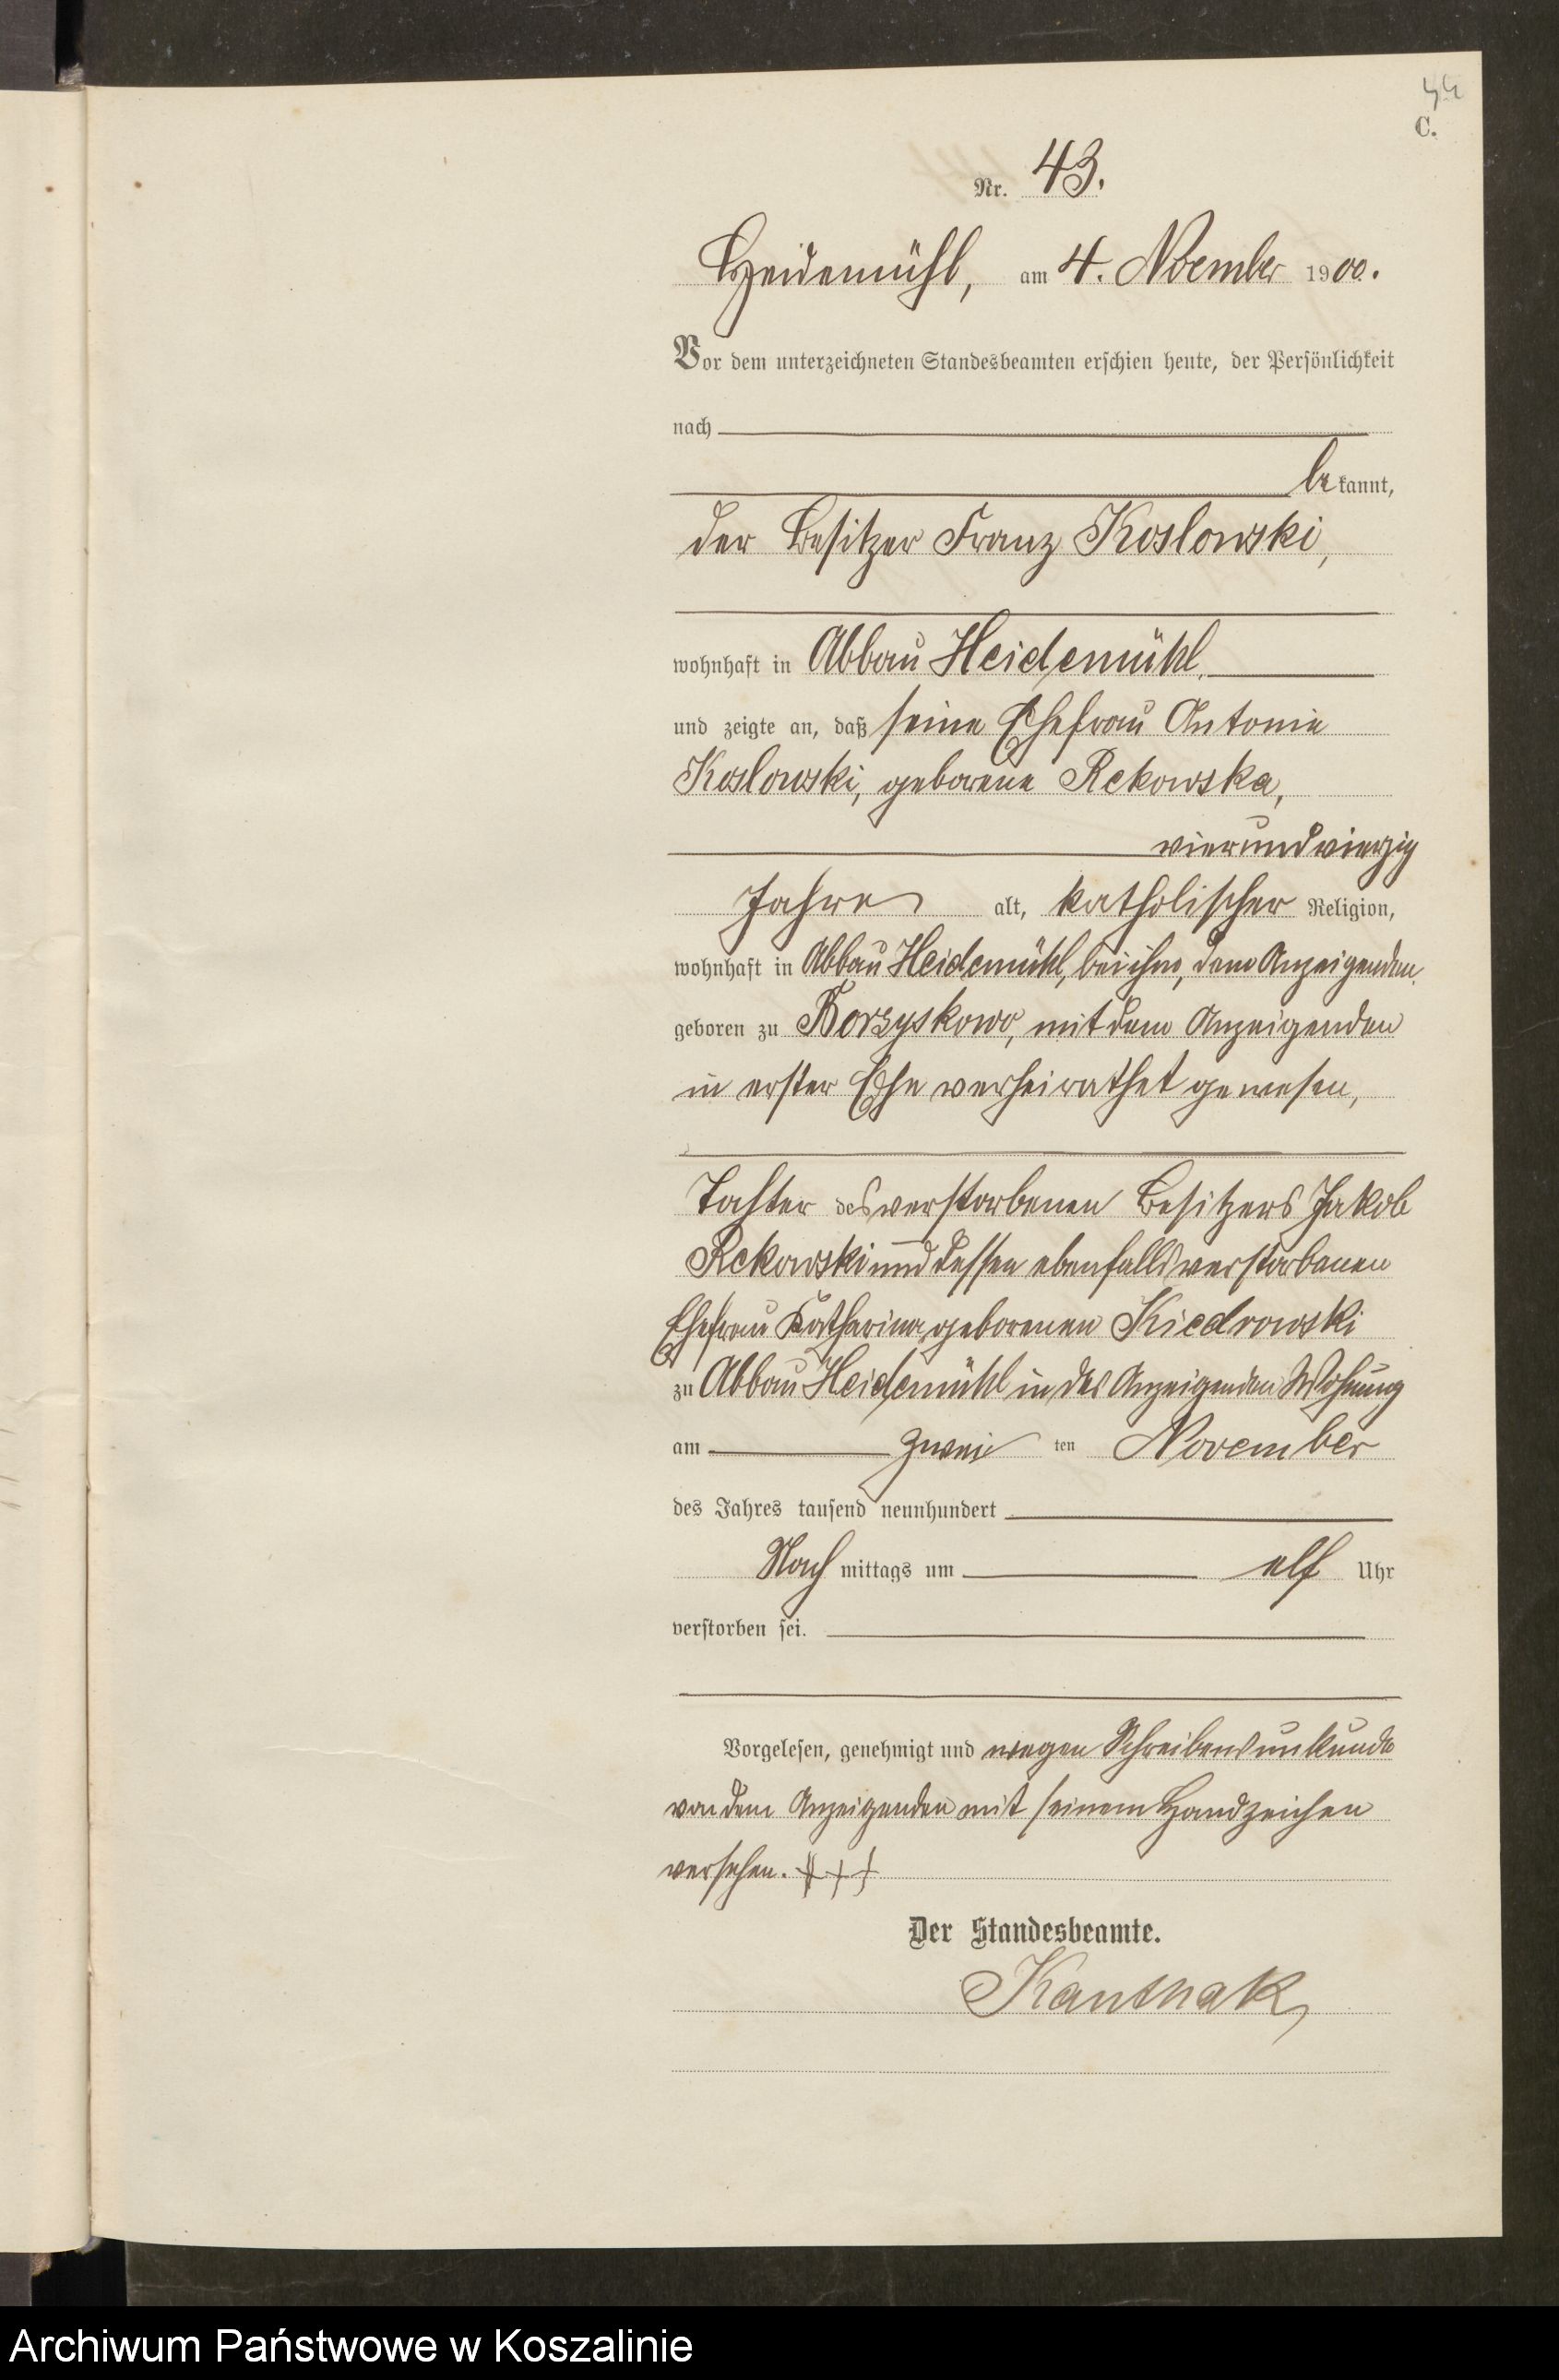 44
C.
Nr. 43.
Heidemühl, am 4. November 1900.
Vor dem unterzeichneten Standesbeamten erschien heute, der Persönlichkeit
nach
bekannt,
der Besitzer Franz Koslowski,
wohnhaft in Abbau Heidemühl,
und zeigte an, daß seine Ehefrau Antonie
Koslowski, geborene Rekowska,
vierundvierzig
Jahre alt, katholischer Religion,
wohnhaft in Abbau Heidemühl, bei ihm, dem Anzeigenden,
geboren zu Borzyskowo, mit dem Anzeigenden
in erster Ehe verheirathet gewesen,
Tochter des verstorbenen Besitzers Jakob
Rekowski und dessen ebenfalls verstorbenen
Ehefrau Katharina geborenen Kiedrowski
zu Abbau Heidemühl in des Anzeigenden Wohnung
am zwei ten November
des Jahres tausend neunhundert
Nach mittags um elf Uhr
verstorben sei.
Vorgelesen, genehmigt und wegen Schreibensunkunde
von dem Anzeigenden mit seinem Handzeichen
versehen. +++
Der Standesbeamte.
Kanthak
Archiwum Państwowe w Koszalinie